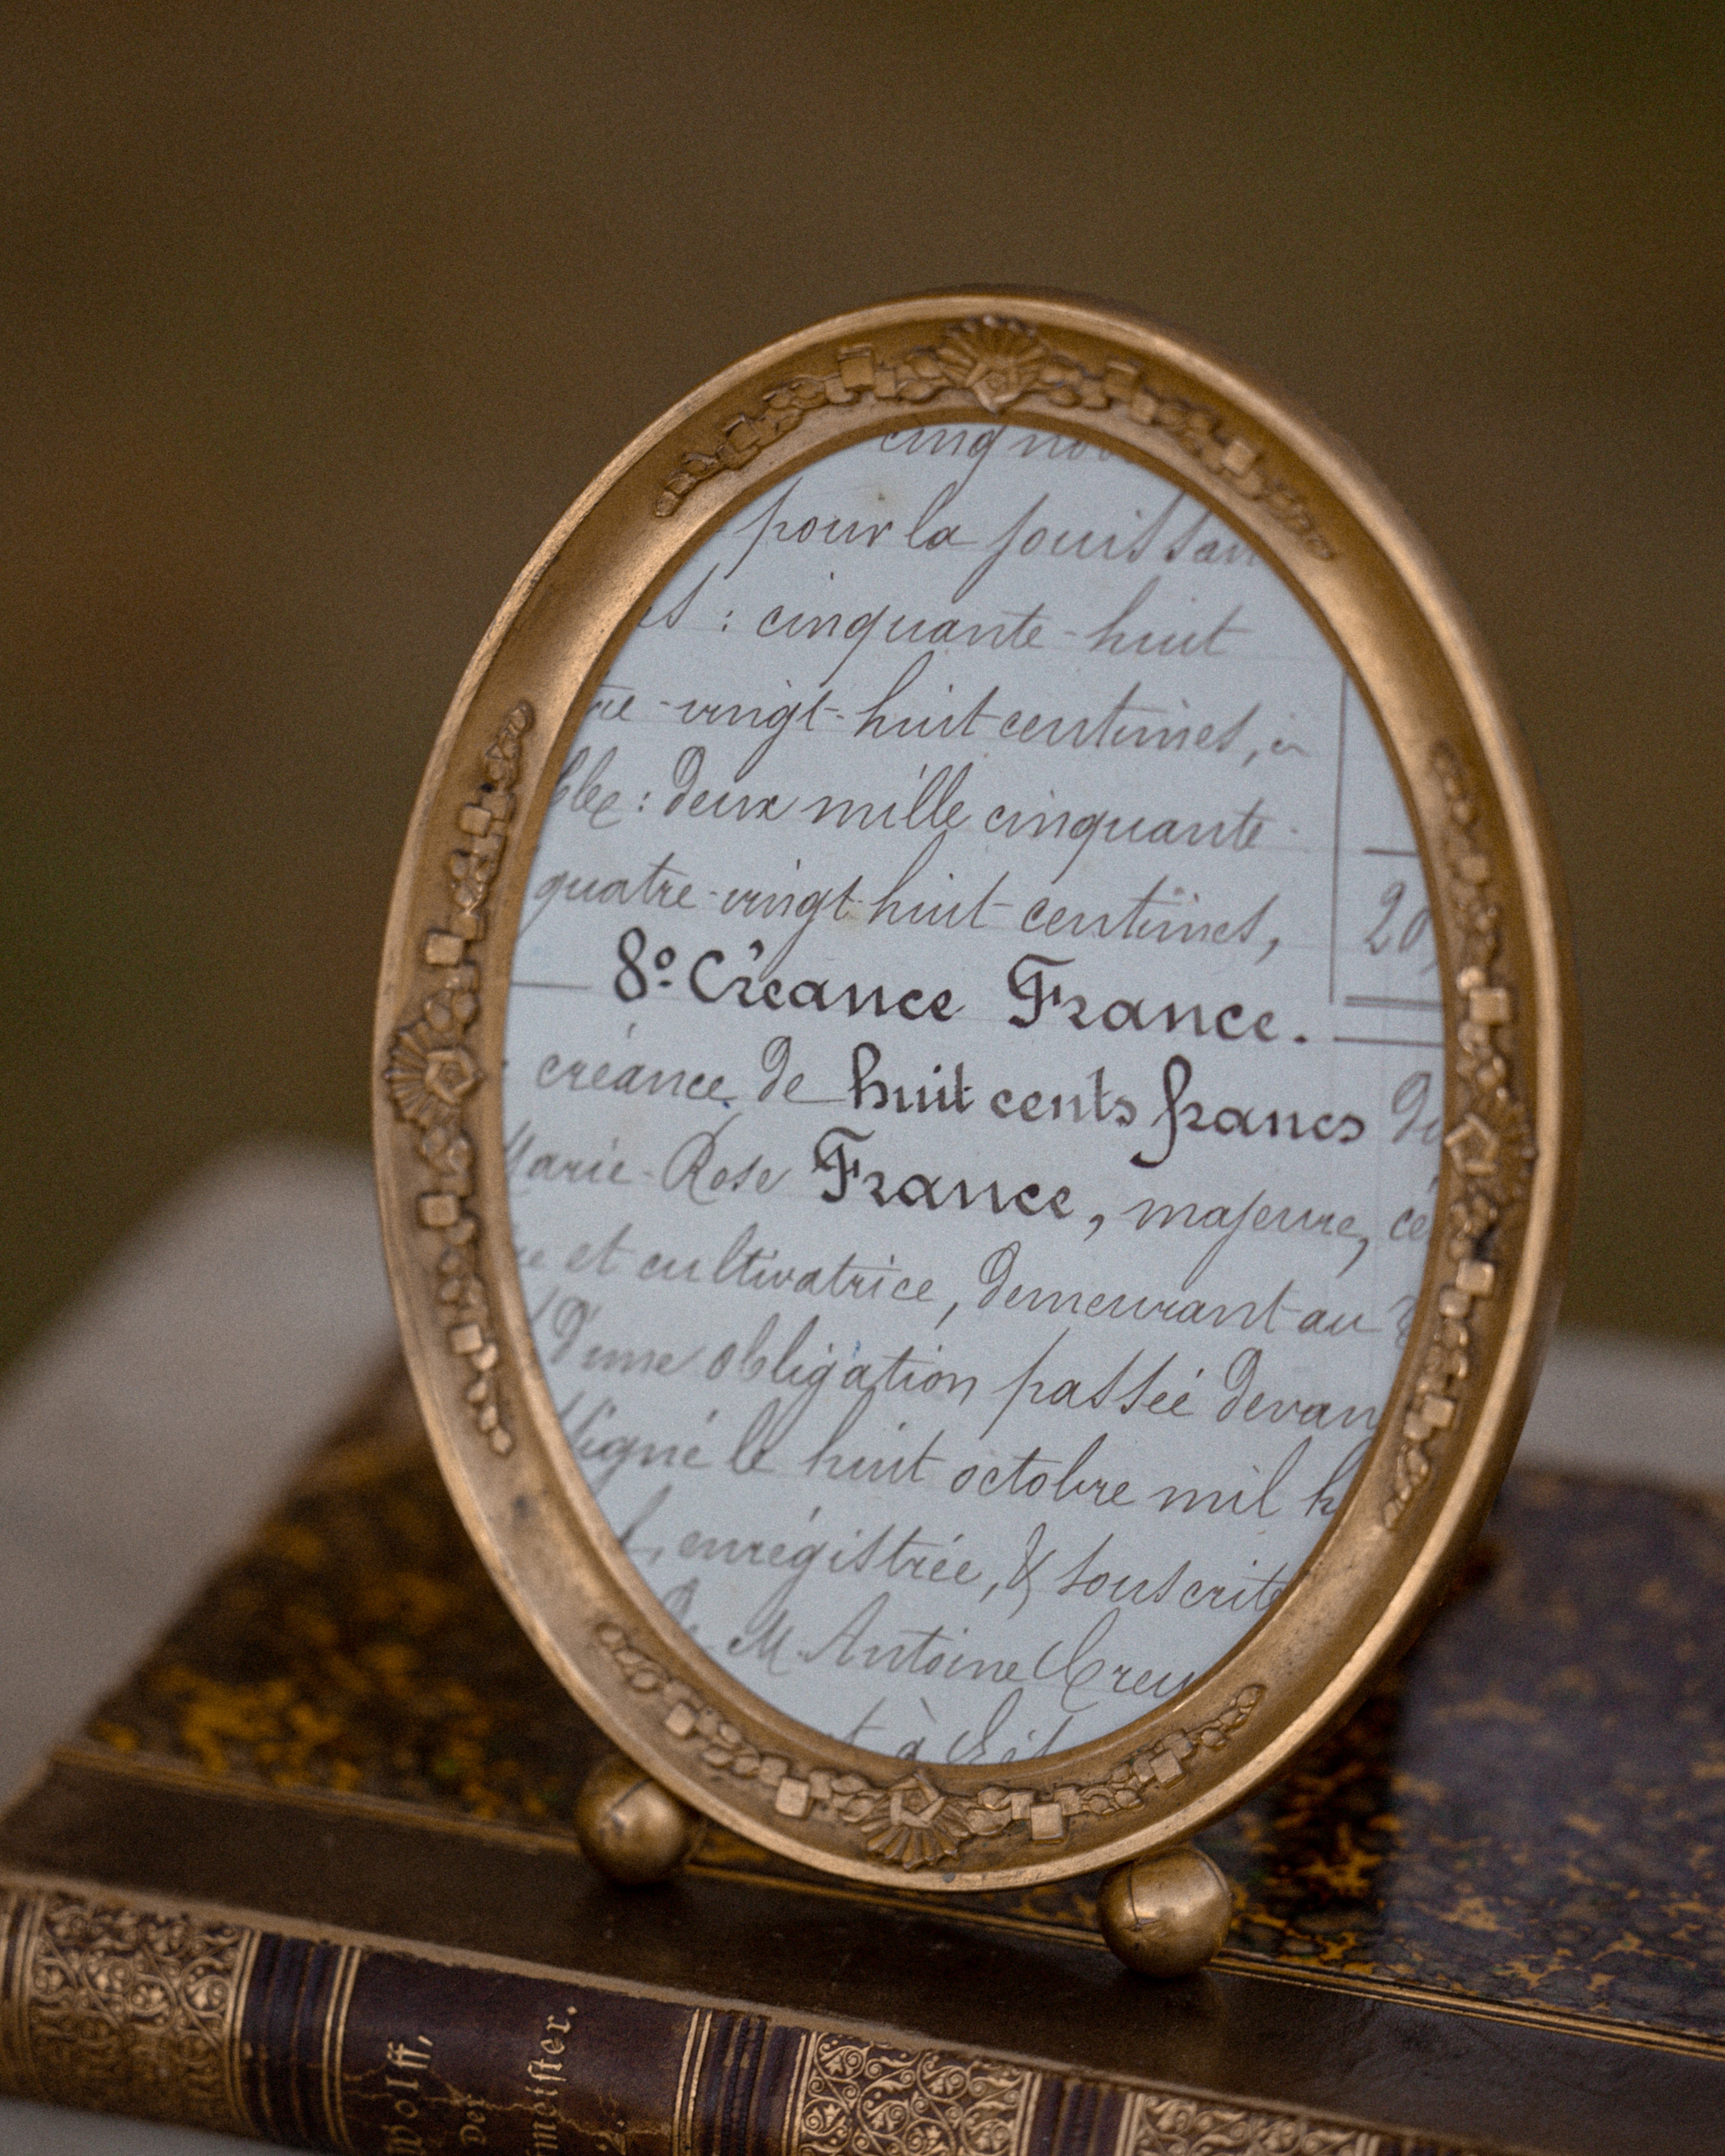 cinq
pour la jouissan
es : cinquante-huit
re-vingt-huit centimes,
ble : deux mille cinquante
quatre-vingt-huit centimes,
20,
8º Créance France.
créance de huit cents francs du
Marie-Rose France, majeure, cé
et cultivatrice, demeurant au
d'une obligation passée devan
signé le huit octobre mil h
enrégistrée, & souscrite
de M. Antoine Creu
t à
Wolff,
Der
meister.